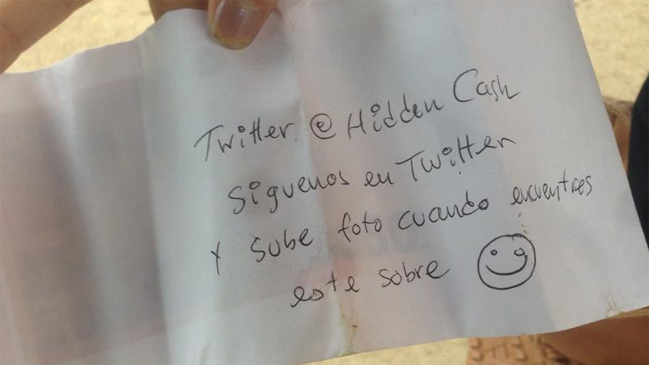 Twitter @ Hidden Cash
Siguenos en Twitter
Y sube foto cuando encuentres
este sobre